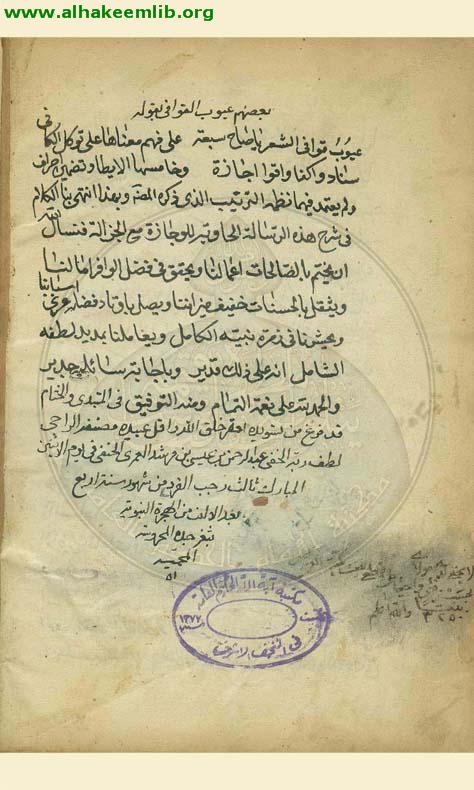 www.alhakeemlib.org
بعضهم عيوب القوافي بقوله
عيوب قوافي الشعر يا صاح سبعة على فهم معناها على توكل الكافي
سناد واكفا واقوا اجازة وخامسها الايطا وتضمين
ولم يعتمد فيها نظم الترتيب الذي ذكره المصنف وبهذا انتهى بنا الكلام
في شرح هذه الرسالة الحاوية للوجازة مع الجزالة فنسأل الله
ان يختم بالصالحات اعمالنا ويحقق في فضله الوافر امالنا
ويثقل بالحسنات خفيف ميزاننا ويصل باوتاد فضله اسبابنا
ويحشرنا في زمرة نبيه الكامل ويعاملنا بمديد لطفه
الشامل انه على ذلك قدير وباجابة سائله جدير
والحمد لله على نعمة التمام ومنه التوفيق في المبتدى والختام
قد فرغ من تسويده احقر خلق الله واقل عبيده مصنفه الراجي
لطف ربه الخفي عبد الرحمن بن عيسى بن مرشد العمري الحنفي في يوم الاثنين
المبارك ثالث رجب الفرد من شهور سنة اربع
بعد الالف من الهجرة النبوية
بثغر جدة المحروسة
المحمية
مكتبة آية الله الحكيم العامة
١٣٧٧
في النجف الاشرف